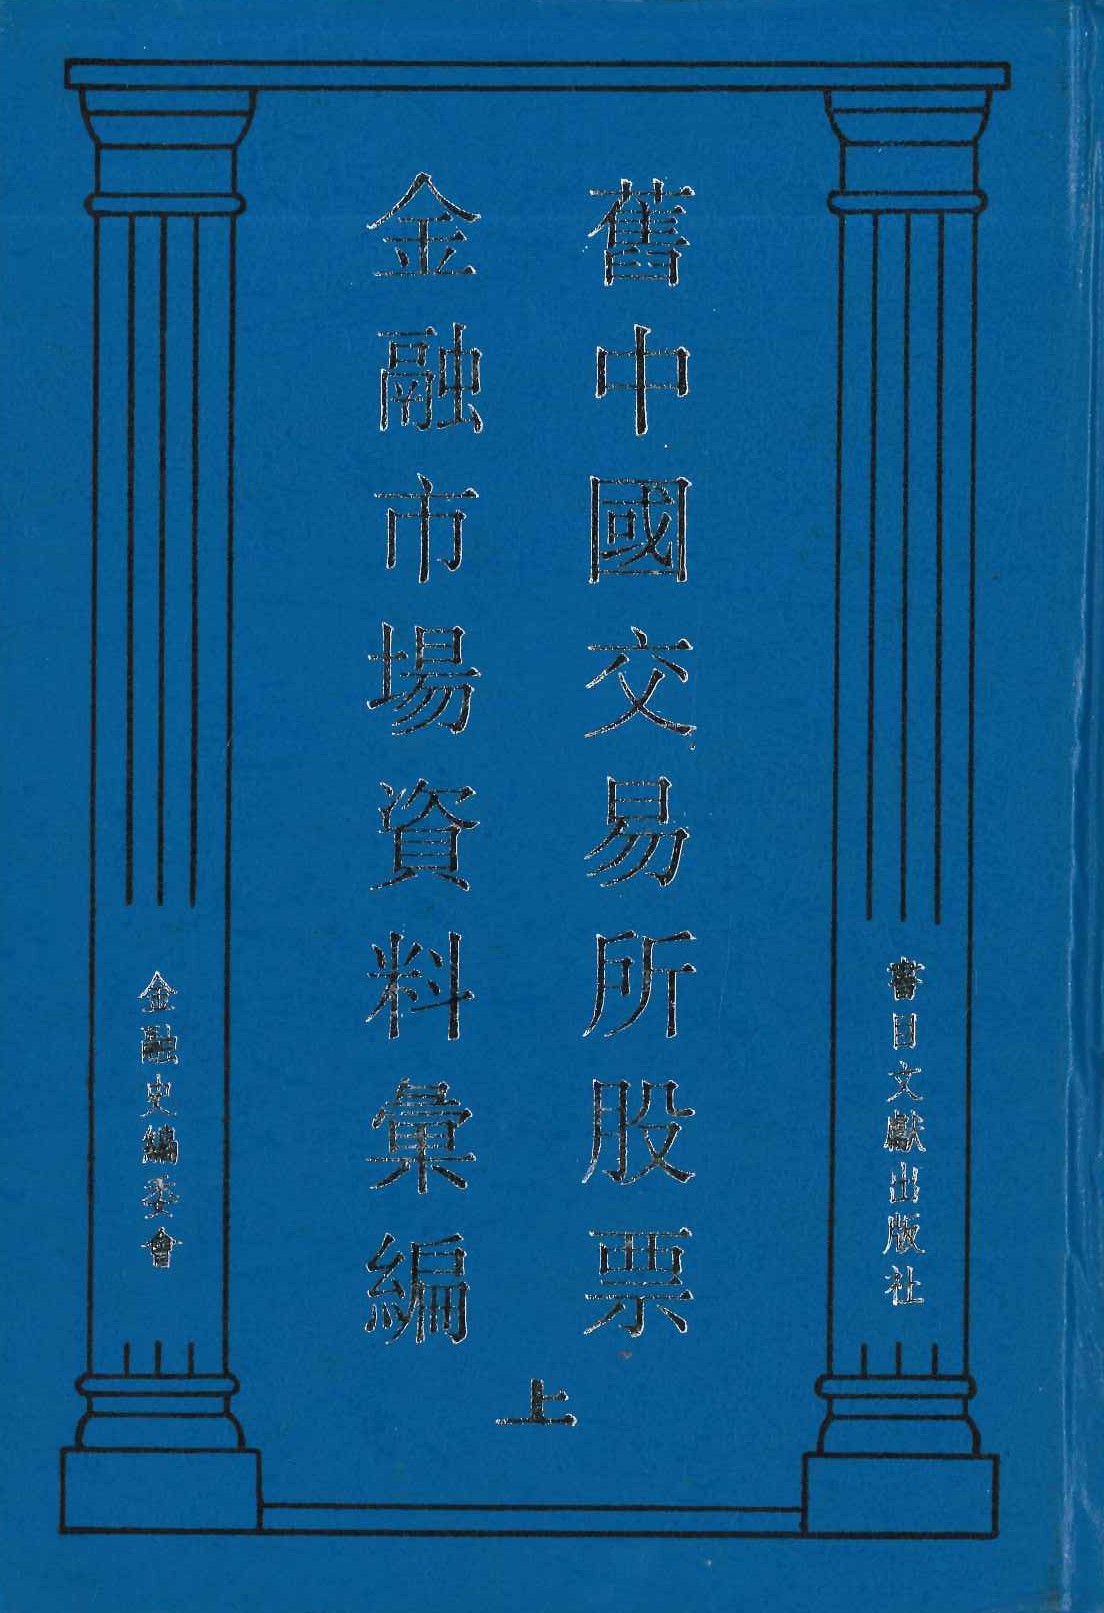 舊中國交易所股票
金融市場資料彙編
上
書目文獻出版社
金融史編委會